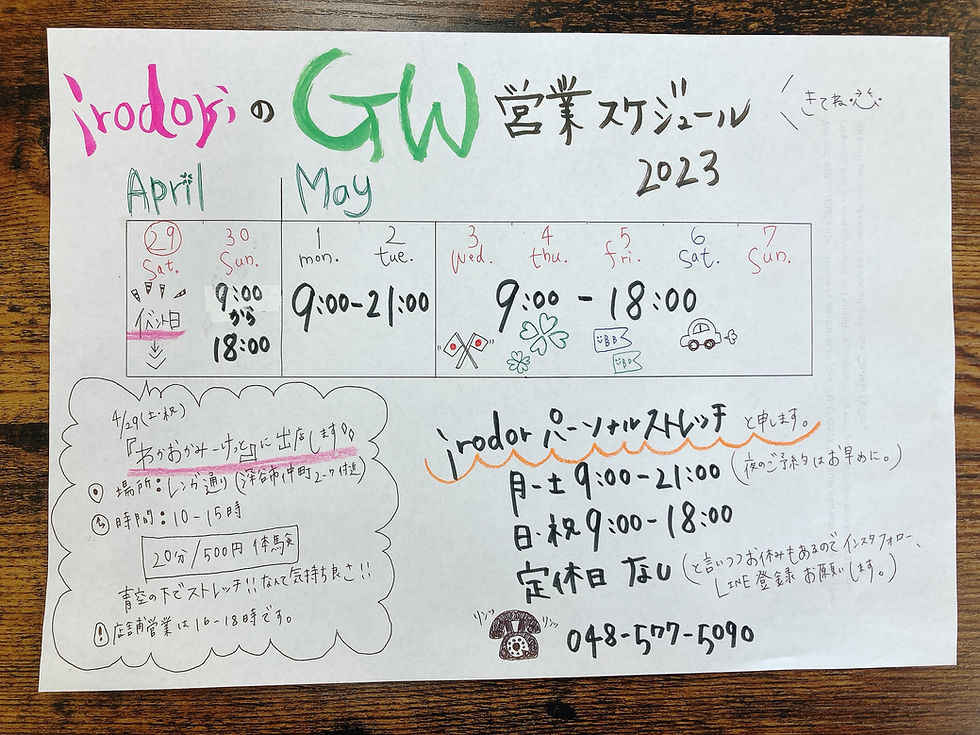 irodoriのGW営業スケジュール
きてね
2023
April May
29 30 1 2 3 4 5 6 7
Sat. Sun. mon. tue. Wed. thu. fri. Sat. Sun.
イベント日
9:00
から
18:00
9:00-21:00
9:00-18:00
4/29(土・祝)
『わかおかみーけっと』に出店します
場所:レンガ通り(深谷市仲町
時間:10-15時
20分/500円 体験
青空の下でストレッチ!!なんて気持ち良さ!!
店舗営業は16-18時です。
irodori パーソナルストレッチ と申します。
月-土 9:00-21:00 (夜のご予約はお早めに。)
日・祝 9:00-18:00
定休日 なし (と言いつつお休みもあるのでインスタフォロー、
LINE登録お願いします。)
リンッ リンッ
048-577-5090